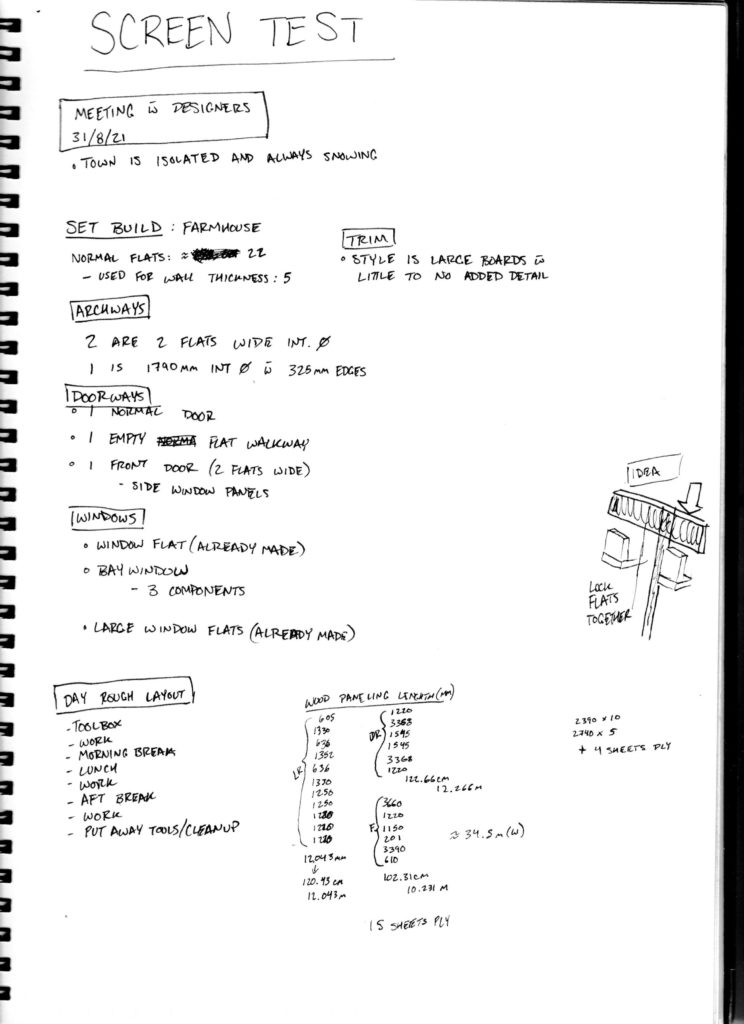 SCREEN TEST
MEETING w̄ DESIGNERS
31/8/21
• TOWN IS ISOLATED AND ALWAYS SNOWING
SET BUILD : FARMHOUSE
NORMAL FLATS: ≈ 22
- USED FOR WALL THICKNESS: 5
TRIM
• STYLE IS LARGE BOARDS w̄
LITTLE TO NO ADDED DETAIL
ARCHWAYS
2 ARE 2 FLATS WIDE INT. Ø
1 IS 1790mm INT Ø w̄ 325mm EDGES
DOORWAYS
• 1 NORMAL DOOR
• 1 EMPTY FLAT WALKWAY
• 1 FRONT DOOR (2 FLATS WIDE)
- SIDE WINDOW PANELS
WINDOWS
• WINDOW FLAT (ALREADY MADE)
• BAY WINDOW
- 3 COMPONENTS
• LARGE WINDOW FLATS (ALREADY MADE)
IDEA
LOCK
FLATS
TOGETHER
DAY ROUGH LAYOUT
- TOOLBOX
- WORK
- MORNING BREAK
- LUNCH
- WORK
- AFT BREAK
- WORK
- PUT AWAY TOOLS/CLEANUP
WOOD PANELING LENGTH (mm)
LR
605
1330
636
1352
636
1330
1250
1250
1220
1220
1220
12.043 mm
↓
120.43 cm
12.043 m
DR
1220
3368
1545
1545
3368
1220
122.66cm
12.266 m
F
3660
1220
1150
201
3390
610
102.31cm
10.231 M
≈ 34.5 m (W)
15 SHEETS PLY
2390 x 10
2740 x 5
+ 4 SHEETS PLY